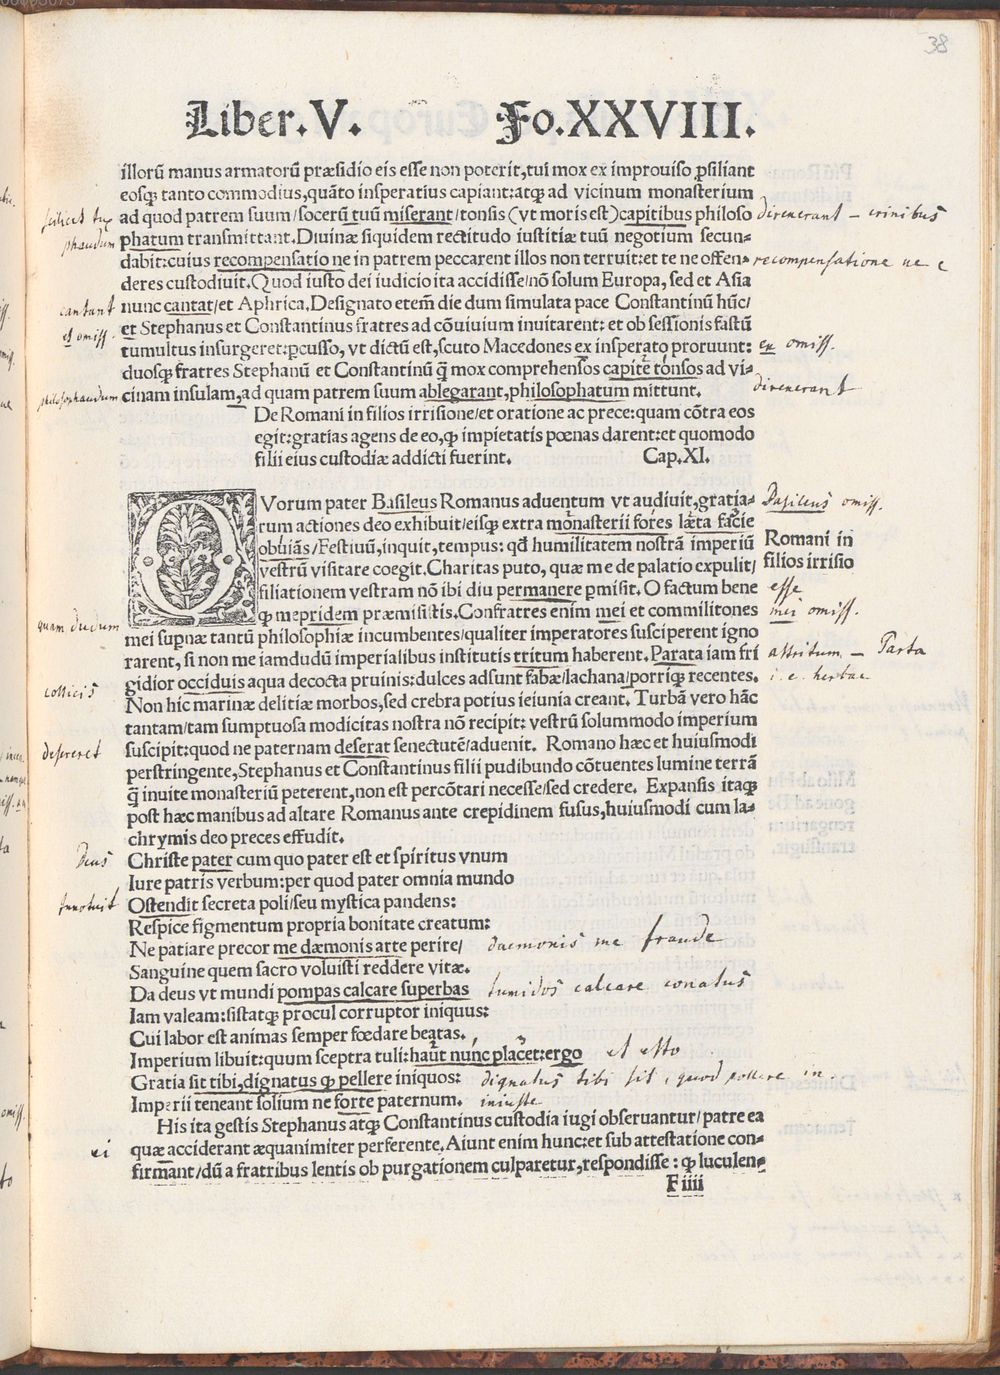 38
Liber.V. Fo.XXVIII.
illorū manus armatorū præsidio eis esse non poterit,tui mox ex improuiso ꝓsiliant
eosqꝫ tanto commodius,quāto insperatius capiant:atqꝫ ad vicinum monasterium
ad quod patrem suum/socerū tuū miserant/tonsis (vt moris est) capitibus philoso
direxerant – crinibus
phatum transmittant.Diuinæ siquidem rectitudo iustitiæ tuū negotium secun⸗
dabit:cuius recompensatio ne in patrem peccarent illos non terruit:et te ne offen⸗
recompensatione ne
deres custodiuit.Quod iusto dei iudicio ita accidisse/nō solum Europa, sed et Asia
cantant
nunc cantat/et Aphrica.Designato etem̄ die dum simulata pace Constantinū hūc/
et omiss.
et Stephanus et Constantinus fratres ad cōuiuium inuitarent: et ob sessionis fastū
tumultus insurgeret:ꝑcusso, vt dictū est, scuto Macedones ex insperato proruunt:
ex omiss.
duosqꝫ fratres Stephanū et Constantinū q̄ mox comprehensos capite tonsos ad vi⸗
philosophandum
cinam insulam,ad quam patrem suum ablegarant,philosophatum mittunt.
direxerant
De Romani in filios irrisione/et oratione ac prece:quam cōtra eos
egit:gratias agens de eo,qꝫ impietatis pœnas darent:et quomodo
filii eius custodiæ addicti fuerint. Cap.XI.
QVorum pater Basileus Romanus aduentum vt audiuit,gratia⸗
Basileus omiss.
rum actiones deo exhibuit/eisqꝫ extra monasterii fores læta facie
obuiās/Festiuū,inquit,tempus: qd̄ humilitatem nostrā imperiū
Romani in
vestrū visitare coegit.Charitas puto, quæ me de palatio expulit/
filios irrisio
filiationem vestram nō ibi diu permanere ꝑmisit. O factum bene
esse
qꝫ mepridem præmisistis.Confratres enim mei et commilitones
mei omiss.
quam dudum
mei supnæ tantū philosophiæ incumbentes/qualiter imperatores susciperent igno
rarent, si non me iamdudū imperialibus institutis tritum haberent.Parata iam fri
attritum – Parta
gidior occiduis aqua decocta pruinis:dulces adsunt fabæ/lachana/porriqꝫ recentes.
i. e. herbae
Non hic marinæ delitiæ morbos,sed crebra potius ieiunia creant. Turbā vero hāc
tantam/tam sumptuosa modicitas nostra nō recipit: vestrū solummodo imperium
desereret
suscipit:quod ne paternam deserat senectutē/aduenit. Romano hæc et huiusmodi
perstringente,Stephanus et Constantinus filii pudibundo cōtuentes lumine terrā
q̄ inuite monasteriū peterent,non est percōtari necesse/sed credere. Expansis itaqꝫ
post hæc manibus ad altare Romanus ante crepidinem fusus,huiusmodi cum la⸗
chrymis deo preces effudit.
Deus
Christe pater cum quo pater est et spiritus vnum
Iure patris verbum:per quod pater omnia mundo
Innotuit
Ostendit secreta poli/seu mystica pandens:
Respice figmentum propria bonitate creatum:
Ne patiare precor me dæmonis arte perire/
daemonis me fraude
Sanguine quem sacro voluisti reddere vitæ.
Da deus vt mundi pompas calcare superbas
tumidos calcare conatus
Iam valeam:sistatqꝫ procul corruptor iniquus:
Cui labor est animas semper fœdare beatas.
Imperium libuit:quum sceptra tuli:haut nunc placet:ergo
et esto
Gratia sit tibi,dignatus qꝫ pellere iniquos:
dignatus tibi sit, quod pellere in.
Imperii teneant solium ne forte paternum.
iniuste
His ita gestis Stephanus atqꝫ Constantinus custodia iugi obseruantur/patre ea
ei
quæ acciderant æquanimiter perferente.Aiunt enim hunc:et sub attestatione con⸗
firmant/dū a fratribus lentis ob purgationem culparetur,respondisse : qꝫ luculen⸗
F iiii